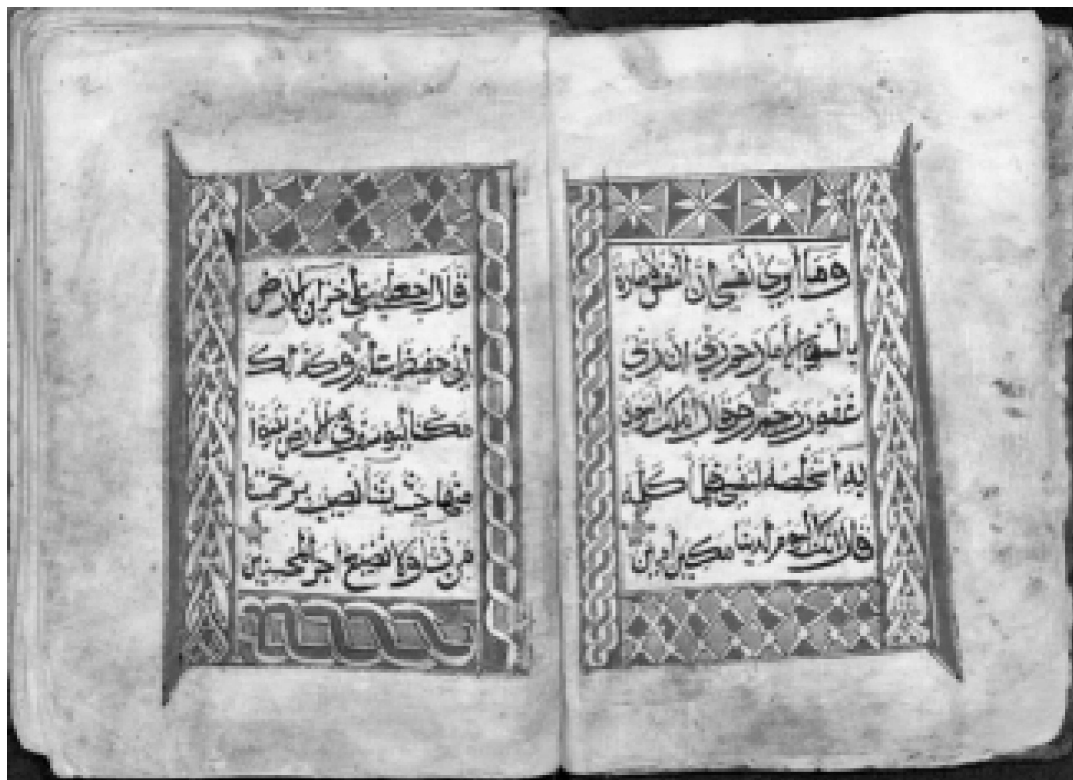 وما أبرئ نفسي ان النفس لأمارة
بالسوء إلا ما رحم ربي إن ربي
غفور رحيم وقال الملك ائتوني
به أستخلصه لنفسي فلما كلمه
قال إنك اليوم لدينا مكين أمين
قال اجعلني على خزائن الأرض
إني حفيظ عليم وكذلك
مكنا ليوسف في الأرض يتبوأ
منها حيث يشاء نصيب برحمتنا
من نشاء ولا نضيع أجر المحسنين